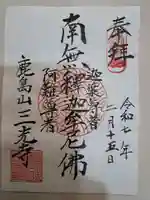 奉拝
令和七年
二月十五日
迦葉尊者
南無釋迦牟尼佛
阿難尊者
鹿島山
三光寺